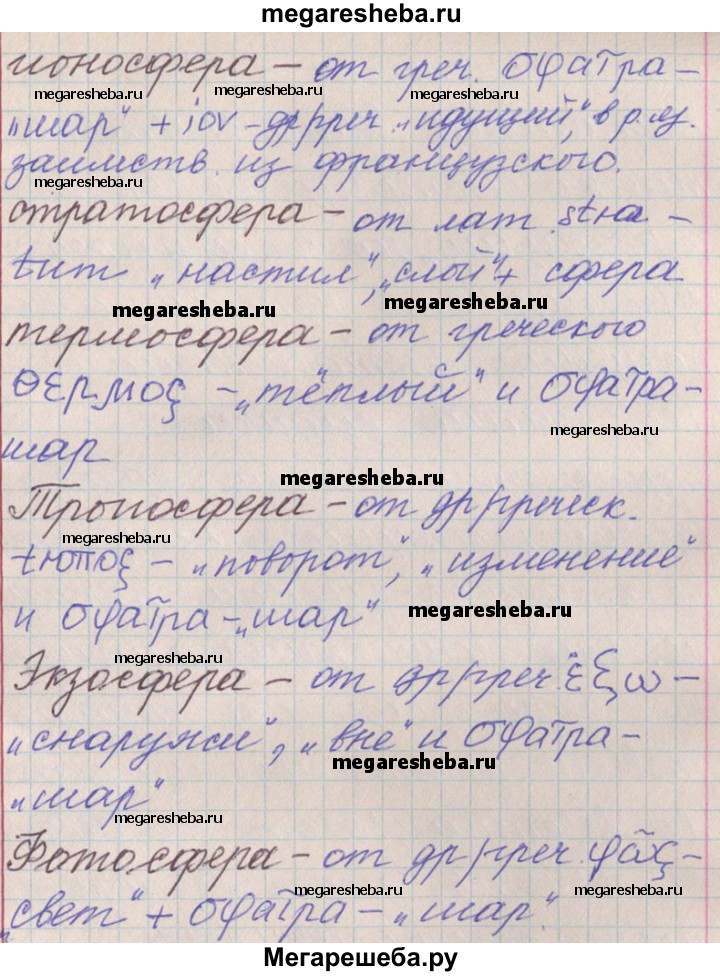 megaresheba.ru
ионосфера – от греч. σφαῖρα –
megaresheba.ru megaresheba.ru megaresheba.ru
„шар“ + ἰόν – др/греч. „идущий“, в р. яз.
заимств. из французского.
megaresheba.ru
стратосфера – от лат. stra –
tum „настил“, „слой“ + сфера
megaresheba.ru megaresheba.ru
термосфера – от греческого
θερμος – „тёплый“ и σφαῖρα –
megaresheba.ru
шар
megaresheba.ru
Тропосфера – от др/греческ.
megaresheba.ru
τροπος – „поворот“, „изменение“
и σφαῖρα – „шар“
megaresheba.ru
megaresheba.ru
Экзосфера – от др/греч. ἔξω –
„снаружи“, „вне“ и σφαῖρα –
megaresheba.ru
„шар“
megaresheba.ru
Фотосфера – от др/греч. φῶς –
megaresheba.ru megaresheba.ru
„свет“ + σφαῖρα – „шар“.
Мегарешеба.ру